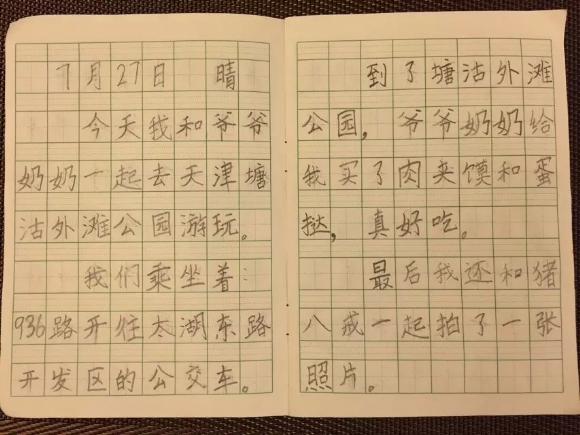 7月27日 晴
今天我和爷爷
奶奶一起去天津塘
沽外滩公园游玩。
我们乘坐着
936路开往太湖东路
开发区的公交车。
到了塘沽外滩
公园，爷爷奶奶给
我买了肉夹馍和蛋
挞，真好吃。
最后我还和猪
八戒一起拍了一张
照片。